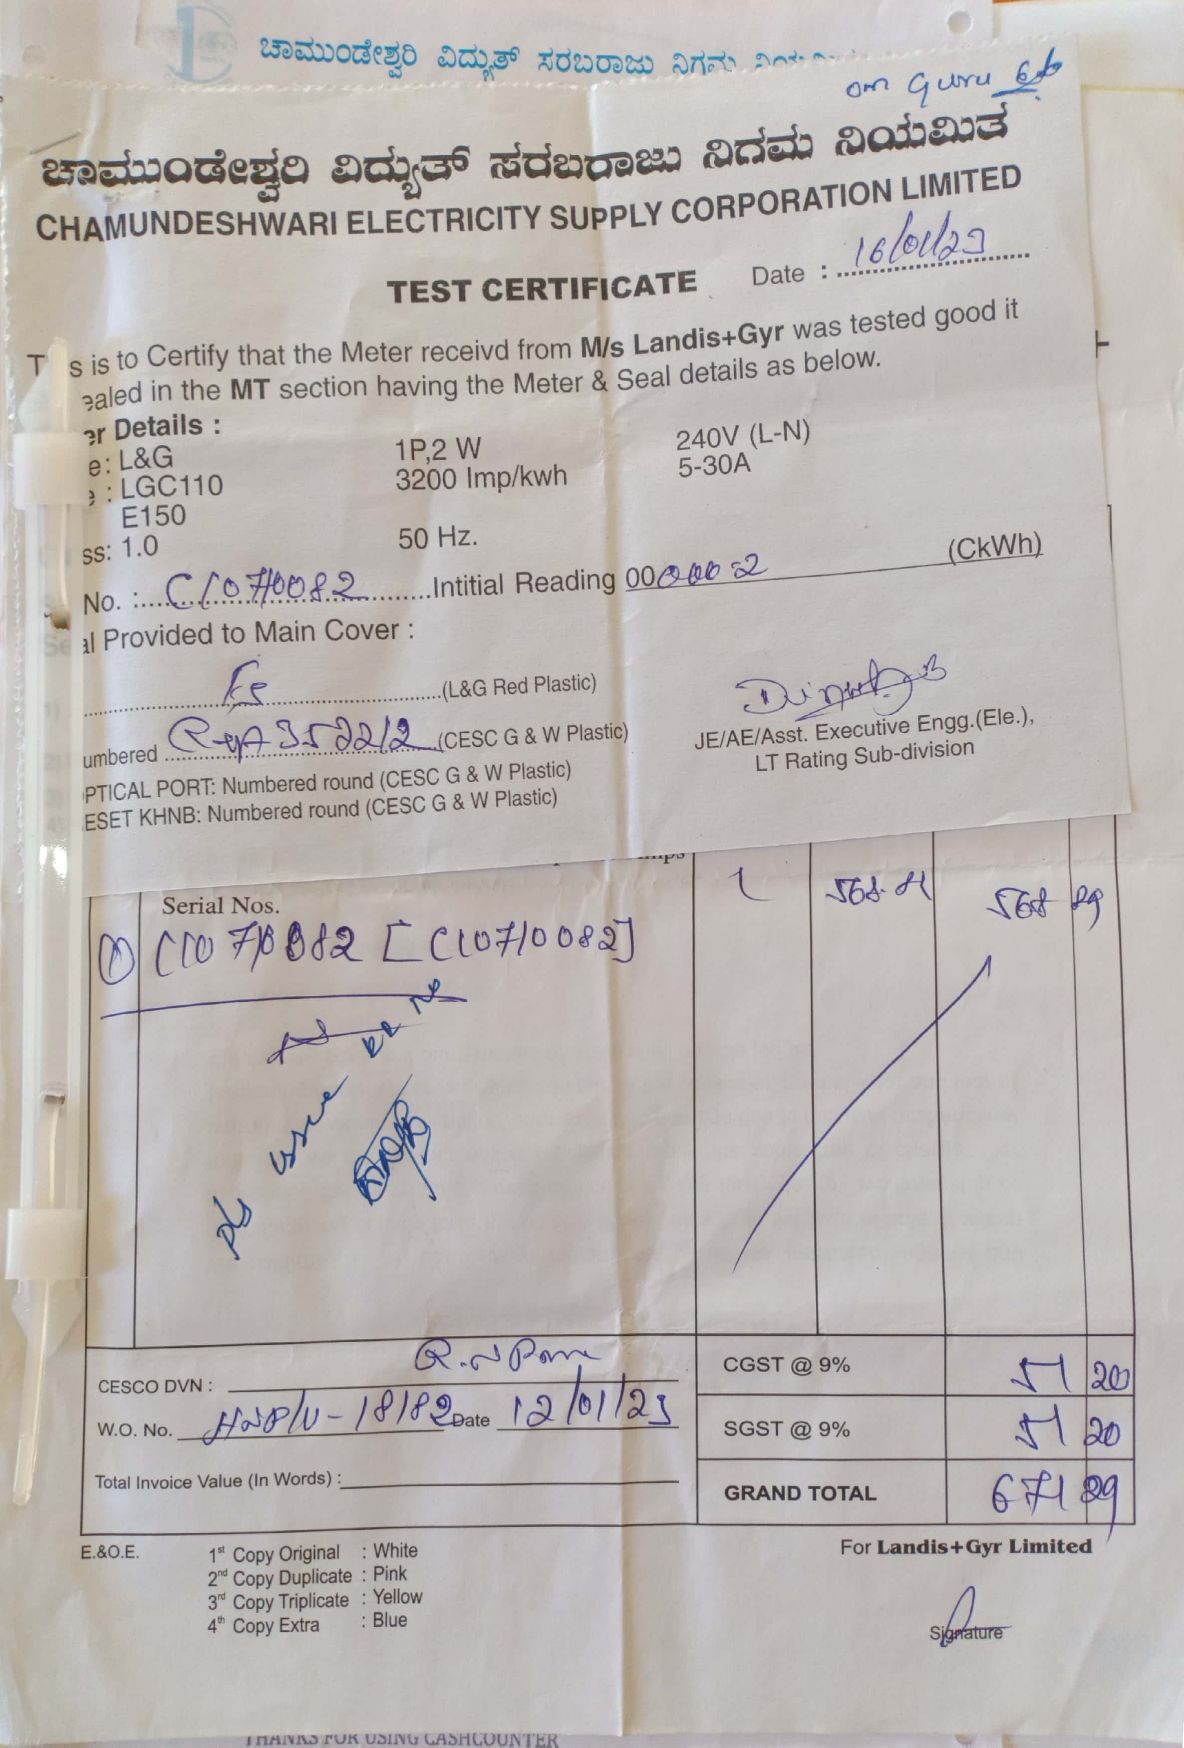 ಚಾಮುಂಡೇಶ್ವರಿ ವಿದ್ಯುತ್ ಸರಬರಾಜು ನಿಗಮ
om Guru
ಚಾಮುಂಡೇಶ್ವರಿ ವಿದ್ಯುತ್ ಸರಬರಾಜು ನಿಗಮ ನಿಯಮಿತ
CHAMUNDESHWARI ELECTRICITY SUPPLY CORPORATION LIMITED
TEST CERTIFICATE Date : 16/01/23
T s is to Certify that the Meter receivd from M/s Landis+Gyr was tested good it
ealed in the MT section having the Meter & Seal details as below.
er Details :
e: L&G 1P,2 W 240V (L-N)
e : LGC110 3200 Imp/kwh 5-30A
E150
ss: 1.0 50 Hz.
No. : C10710082 Intitial Reading 0000002 (CkWh)
al Provided to Main Cover :
(L&G Red Plastic)
umbered 352212 (CESC G & W Plastic)
PTICAL PORT: Numbered round (CESC G & W Plastic)
ESET KHNB: Numbered round (CESC G & W Plastic)
JE/AE/Asst. Executive Engg.(Ele.),
LT Rating Sub-division
Serial Nos. 1 568 89
1) C10710082 [C10710082]
issue
CESCO DVN :
W.O. No. 18182 Date 12/01/23
Total Invoice Value (In Words) :
CGST @ 9% 51 20
SGST @ 9% 51 20
GRAND TOTAL 671 29
E.&O.E.
1st Copy Original : White
2nd Copy Duplicate : Pink
3rd Copy Triplicate : Yellow
4th Copy Extra : Blue
For Landis+Gyr Limited
Signature
THANKS FOR USING CASHCOUNTER